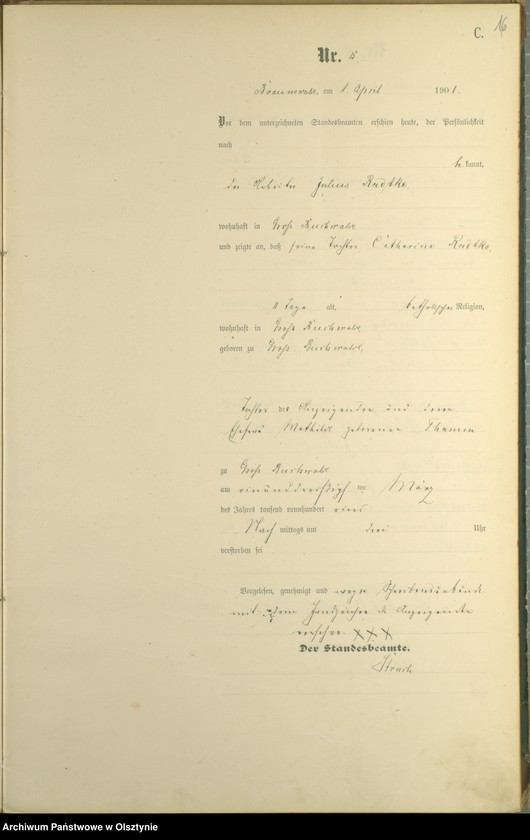 C. 16
Nr. 5.
am 1. April 1901.
Vor dem unterzeichneten Standesbeamten erschien heute, der Persönlichkeit
nach
be kannt,
der Arbeiter Julius Radtke,
wohnhaft in Groß Buchwalde
und zeigte an, daß seine Tochter Catharina Radtke,
11 Tage alt, katholischer Religion,
wohnhaft in Groß Buchwalde
geboren zu Groß Buchwalde,
Tochter des Anzeigenden und seiner
Ehefrau Mathilde geborenen Thamm
zu Groß Buchwalde
am einunddreißigsten März
des Jahres tausend neunhundert eins
Nach mittags um drei Uhr
verstorben sei
Vorgelesen, genehmigt und wegen Schreibensunkunde
mit dem Handzeichen des Anzeigenden
versehen. XXX
Der Standesbeamte.
Archiwum Państwowe w Olsztynie